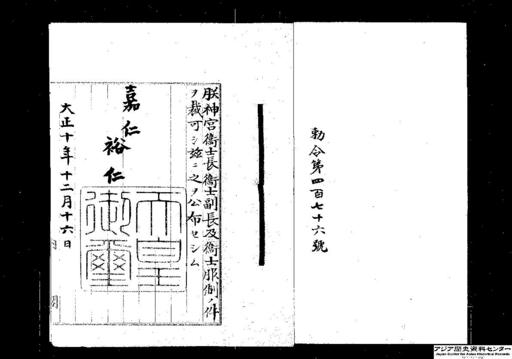 勅令第四百七十六號
朕神宮衞士長衞士副長及衞士服制ノ件
ヲ裁可シ茲ニ之ヲ公布セシム
嘉仁
裕仁
天皇御璽
大正十年十二月十六日
アジア歴史資料センター
Japan Center for Asian Historical Records